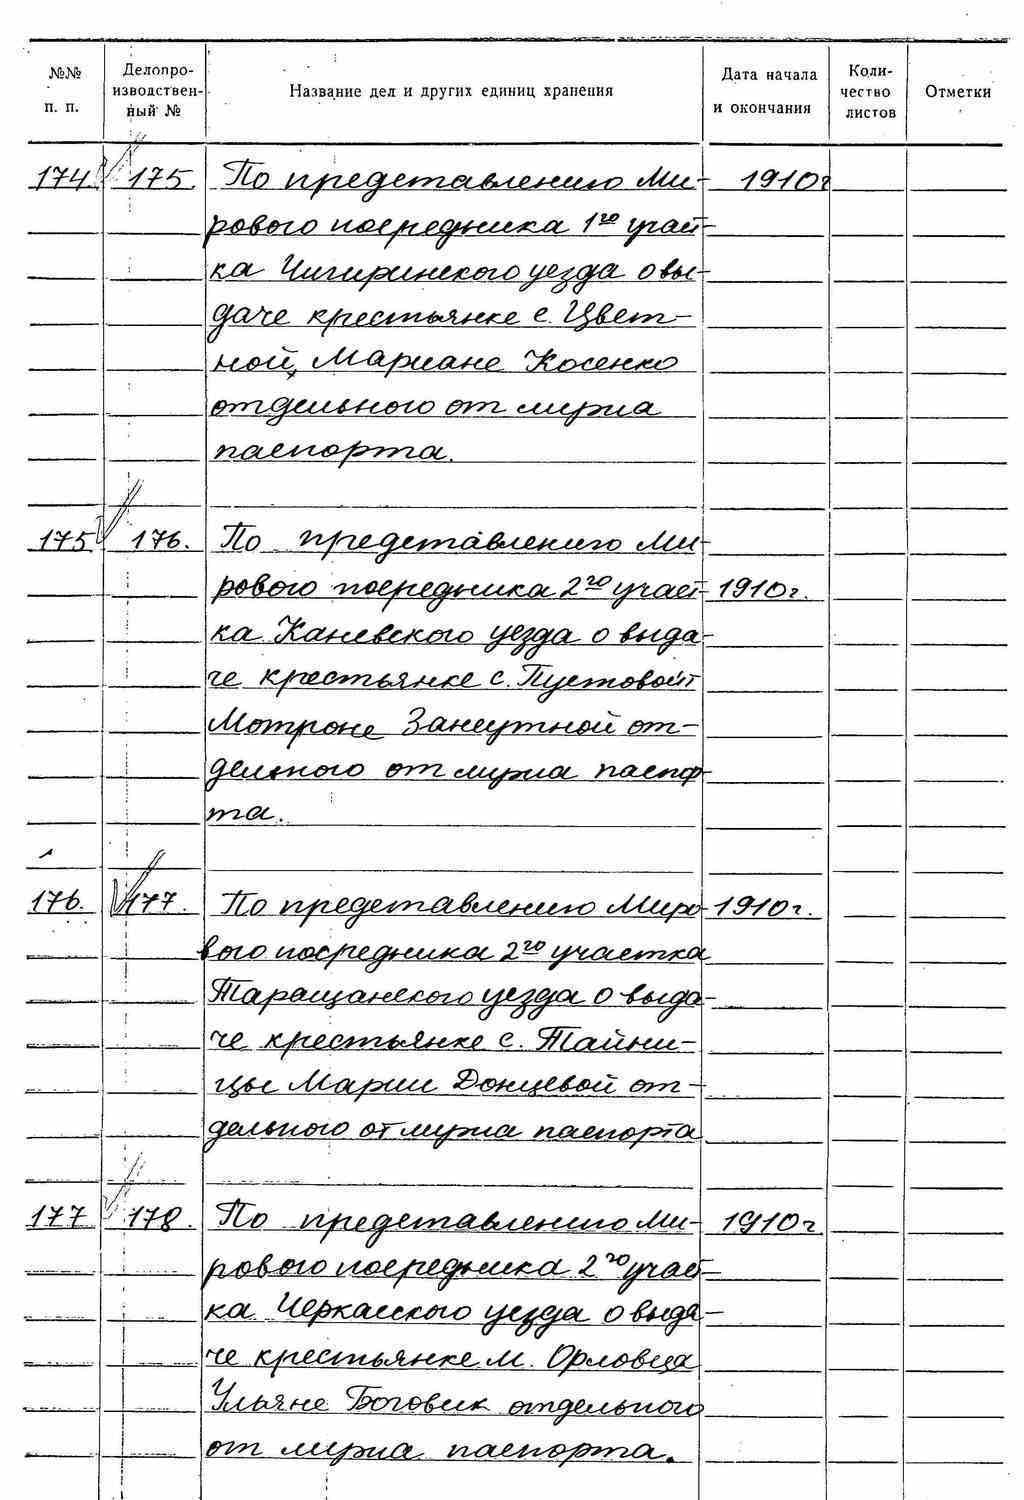 №№ п. п. Делопроизводственный № Название дел и других единиц хранения Дата начала и окончания Количество листов Отметки
174 175. По представлению Ми- 1910г
рового посредника 1го участ-
ка Чигиринского уезда о вы-
даче крестьянке с. Цвет-
ной, Мариане Косенко
отдельного от мужа
паспорта.
175 176. По представлению Ми-
рового посредника 2го участ- 1910г.
ка Каневского уезда о выда-
че крестьянке с. Пустовойт
Мотроне Занеутной от-
дельного от мужа паспор-
та.
176. 177. По представлению Миро- 1910г.
вого посредника 2го участка
Таращанского уезда о выда-
че крестьянке с. Тайни-
цы Марии Донцевой от-
дельного от мужа паспорта
177 178. По представлению Ми- 1910г
рового посредника 2го участ-
ка Черкасского уезда о выда-
че крестьянке м. Орловца
Ульяне Боговик отдельного
от мужа паспорта.